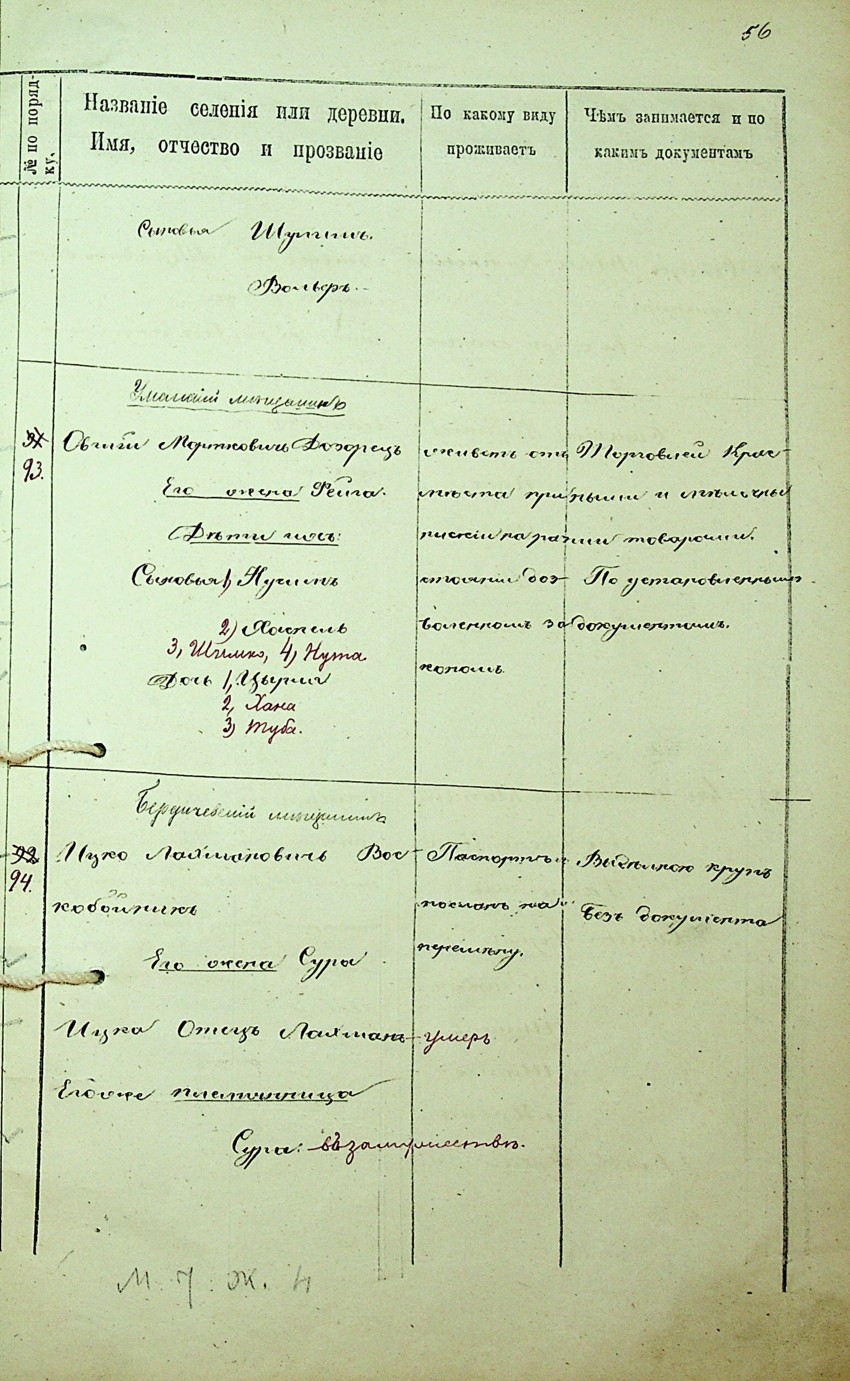 56
№ по поряд-
ку.
Названіе селенія или деревни.
Имя, отчество и прозваніе
По какому виду
проживаетъ
Чѣмъ занимается и по
какимъ документамъ
Сыновья Шулимъ.
Вольфъ.
Уманскій мѣщанинъ
91
93.
Овшій Мортковичъ Дозорецъ
Его жена Рейза.
Дѣти ихъ:
Сыновья 1) Нухимъ
2) Хаскель
3, Шлемко, 4) Нута
Дочь 1, Цырля
2, Хана
3) Туба.
живетъ отъ
мѣста при
писки на раз
стояніи доз-
воленномъ за
кономъ
Торговлей Крас-
ными и мѣлочны
ми товарами.
По установленнымъ
документамъ.
Бердичевскій мѣщанинъ
92
94.
Ицко Лахмановичъ Вос-
кобойникъ
Его жена Сура
Ицка Отецъ Лахманъ - умеръ
Его же племянница
Сура: въ замужествѣ.
Паспортъ
посланъ на
перемѣну.
Выдѣлкою крупъ
Безъ документа
М. 7. Ж. 4